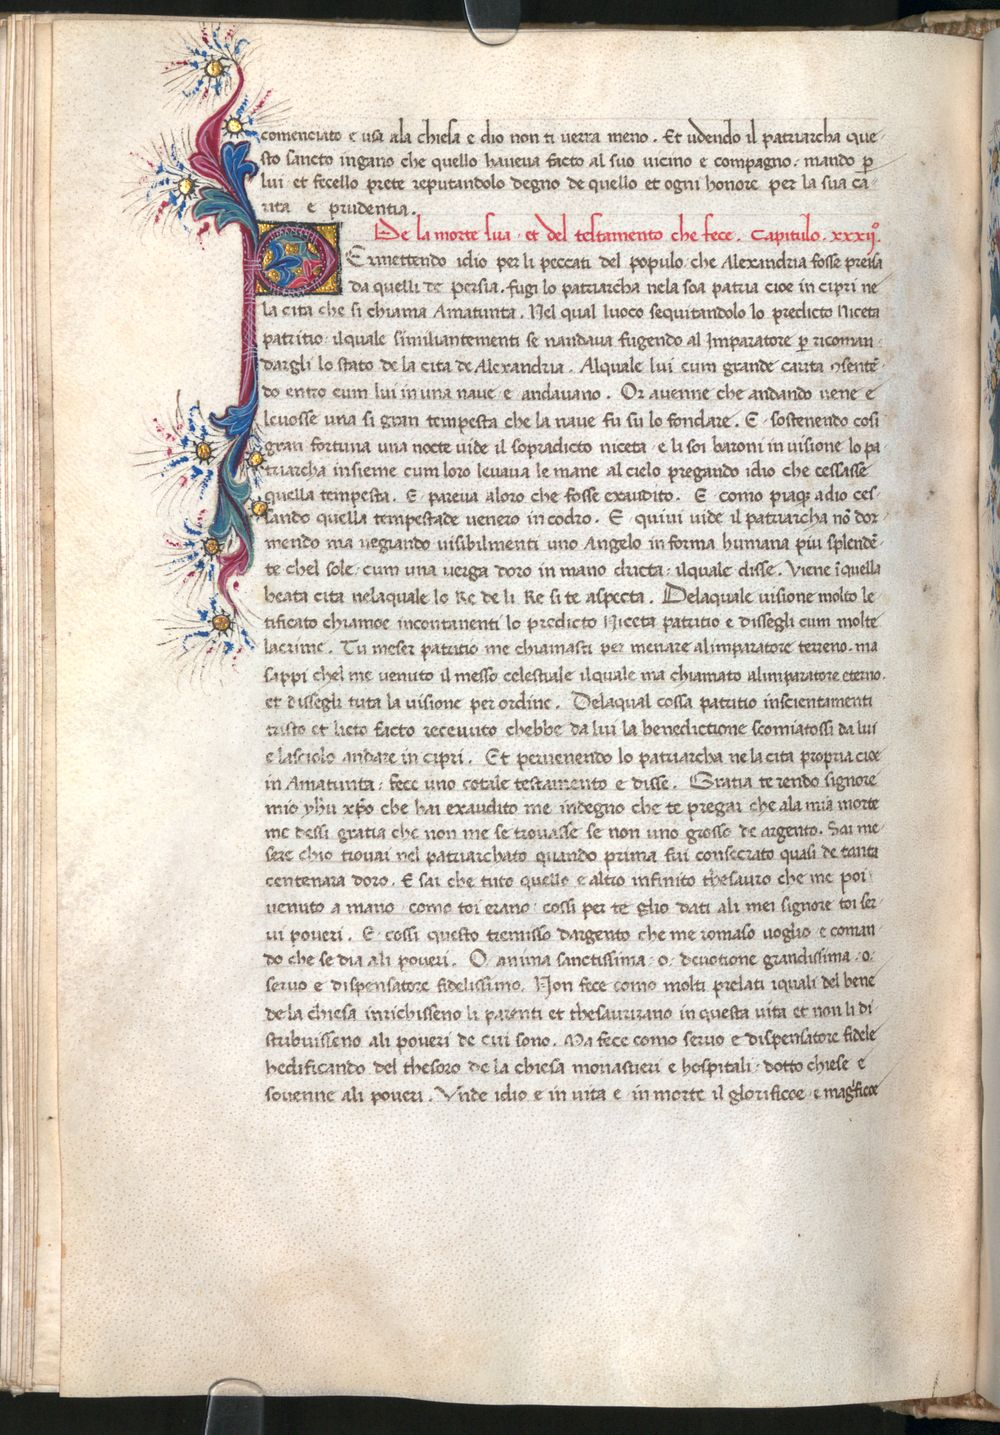 comenciato e usa ala chiesa e dio non ti verra meno. Et udendo il patriarcha que-
sto sancto ingano che quello haveva facto al suo vicino e compagno. mando p̱
lui et fecello prete reputandolo degno de quello et ogni honore per la sua ca-
rita e prudentia.
De la morte sua et del testamento che fece. Capitulo. xxxijº.
PErmettendo idio per li peccati del populo che Alexandria fosse presa
da quelli de persia. fugi lo patriarcha nela soa patria cioe in cipri ne
la cita che si chiama Amatunta. Nel qual luoco sequitandolo lo predicto Niceta
patritio ilquale similiantementi se nandava fugendo al Imparatore p̱ ricoman-
dargli lo stato de la cita de Alexandria. Alquale lui cum grande carita ꝯsentē-
do entro cum lui in una nave e andavano. Or avenne che andando vene e
levosse una si gran tempesta che la nave fu su lo fondare. E sostenendo cosi
gran fortuna una nocte vide il sopradicto niceta e li soi baroni in visione lo pa
triarcha insieme cum loro levava le mane al cielo pregando idio che cessasse
quella tempesta. E pareva aloro che fosse exaudito. E como piaqꝫ adio ces-
sando quella tempestade venero in codro. E quivi vide il patriarcha nō dor
mendo ma vegiando visibilmenti uno Angelo in forma humana piu splendē-
te chel sole cum una verga doro in mano dricta ilquale disse. Viene ī quella
beata cita nelaquale lo Re de li Re si te aspecta. Delaquale visione molto le
tificato chiamoe incontanenti lo predicto Niceta patritio e dissegli cum molte
lacrime. Tu meser patritio me chiamasti per menare alimparatore terreno. ma
sappi chel me venuto il messo celestiale ilquale ma chiamato alimparatore eterno.
et dissegli tuta la visione per ordine. Delaqual cossa patritio inscientamenti
tristo et lieto facto recevuto chebbe da lui la benedictione scomiatossi da lui
e lasciolo andare in cipri. Et pervenendo lo patriarcha ne la cita propria cioe
in Amatunta fece uno cotale testamento e disse. Gratia te rendo signore
mio yħu xp̄o che hai exaudito me indegno che te pregai che ala mia morte
me dessi gratia che non me se trovasse se non uno grosso de argento. Sai me
sere chio trovai nel patriarchato quando prima fui consecrato quasi de tanta
centenara doro. E sai che tuto quello e altro infinito thesauro che me poi
venuto a mano como toi erano cossi per te glio dati ali mei signore toi ser
vi poveri. E cossi questo tremisso dargento che me romaso voglio e coman
do che se dia ali poveri. O anima sanctissima o devotione grandissima o
servo e dispensatore fidelissimo. Non fece como molti prelati iquali del bene
de la chiesa inrichisseno li parenti et thesaurizano in questa vita et non li di
stribuisseno ali poveri de cui sono. Ma fece como servo e dispensatore fidele
hedificando del thesoro de la chiesa monastieri e hospitali dotto chiese e
sovenne ali poveri. Unde idio e in vita e in morte il glorificoe e magnificoe